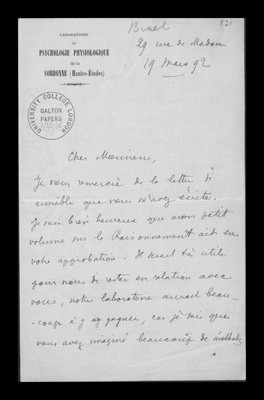 Binet
831
LABORATOIRE
de
PSYCHOLOGIE PHYSIOLOGIQUE
de la
SORBONNE (Hautes-Études)
29 rue de Madame
19 Mars 92
UNIVERSITY COLLEGE LONDON
GALTON PAPERS
Cher Monsieur,
Je vous remercie de la lettre si
aimable que vous m'avez écrite.
Je suis bien heureux que mon petit
volume sur le Raisonnement ait eu
votre approbation. Il serait très utile
pour nous de rester en relation avec
vous, notre laboratoire aurait beau-
-coup à y gagner, car je sais que
vous avez imaginé beaucoup de méthodes